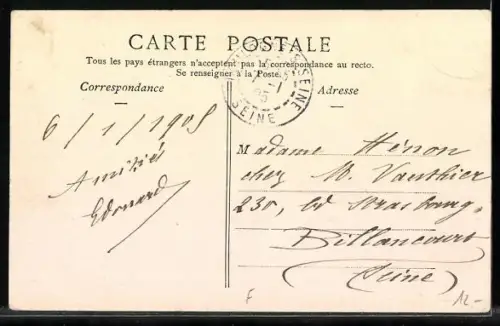 CARTE POSTALE
Tous les pays étrangers n'acceptent pas la correspondance au recto.
Se renseigner à la Poste.
Correspondance
Adresse
6/1/1905
Amitiés
Edouard
Madame Hénon
chez M. Vauthier
230, bd Strasbourg
Billancourt
(Seine)
SEINE
SEINE
F
12-